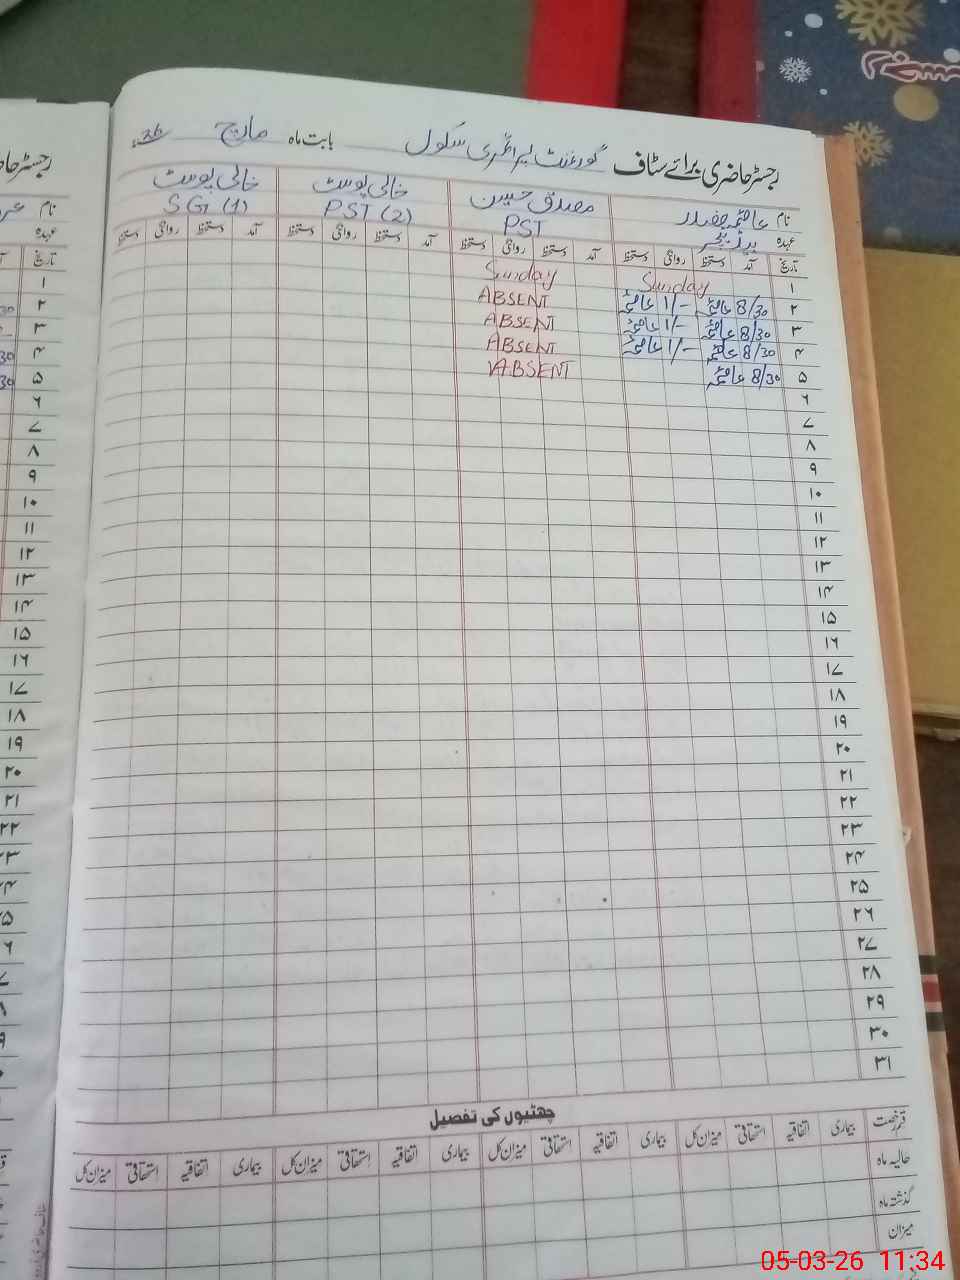 رجسٹر حاضری برائے سٹاف گورنمنٹ پرائمری سکول بابت ماہ مارچ 26
نام عاصمہ صفدر مصدق حسین خالی پوسٹ خالی پوسٹ
عہدہ PST PST (2) SGT (1)
تاریخ آمد دستخط روانگی دستخط آمد دستخط روانگی دستخط آمد دستخط روانگی دستخط آمد دستخط روانگی دستخط
۱ Sunday Sunday
۲ 8/30 عاصمہ 1/- عاصمہ ABSENT
۳ 8/30 عاصمہ 1/- عاصمہ ABSENT
۴ 8/30 عاصمہ 1/- عاصمہ ABSENT
۵ 8/30 عاصمہ ABSENT
۶
۷
۸
۹
۱۰
۱۱
۱۲
۱۳
۱۴
۱۵
۱۶
۱۷
۱۸
۱۹
۲۰
۲۱
۲۲
۲۳
۲۴
۲۵
۲۶
۲۷
۲۸
۲۹
۳۰
۳۱
چھٹیوں کی تفصیل
قسم رخصت بیماری اتفاقیہ استحقاقی میزان کل بیماری اتفاقیہ استحقاقی میزان کل بیماری اتفاقیہ استحقاقی میزان کل بیماری اتفاقیہ استحقاقی میزان کل
حالیہ ماہ
گذشتہ ماہ
میزان
05-03-26 11:34